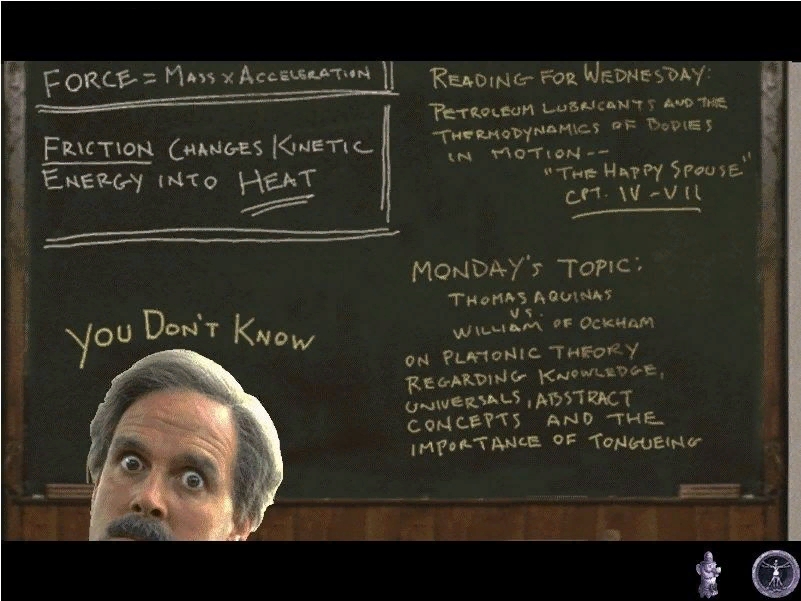 FORCE = MASS x ACCELERATION
FRICTION CHANGES KINETIC
ENERGY INTO HEAT
YOU DON'T KNOW
READING FOR WEDNESDAY:
PETROLEUM LUBRICANTS AND THE
THERMODYNAMICS OF BODIES
IN MOTION--
"THE HAPPY SPOUSE"
CPT. IV - VII
MONDAY'S TOPIC:
THOMAS AQUINAS
VS.
WILLIAM OF OCKHAM
ON PLATONIC THEORY
REGARDING KNOWLEDGE,
UNIVERSALS, ABSTRACT
CONCEPTS AND THE
IMPORTANCE OF TONGUEING